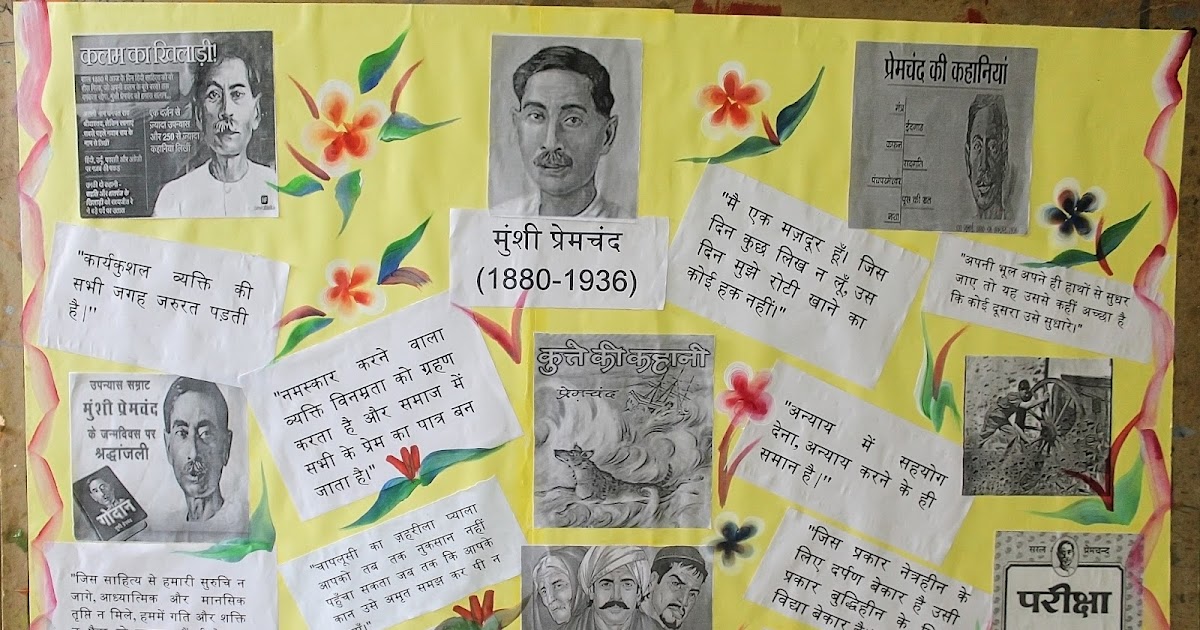 कलम का खिलाड़ी!
एक दर्जन से
ज़्यादा उपन्यास
और 250 से ज़्यादा
कहानियां लिखीं
मुंशी प्रेमचंद
(1880-1936)
प्रेमचंद की कहानियां
मंत्र
ईदगाह
कफन
सद्गति
पंचपरमेश्वर
पूस की रात
नशा
"कार्यकुशल व्यक्ति की
सभी जगह जरुरत पड़ती
है।"
"मै एक मज़दूर हूँ। जिस
दिन कुछ लिख न लूँ, उस
दिन मुझे रोटी खाने का
कोई हक नहीं।"
"अपनी भूल अपने ही हाथों से सुधर
जाए तो यह उससे कहीं अच्छा है
कि कोई दूसरा उसे सुधारे।"
उपन्यास सम्राट
मुंशी प्रेमचंद
के जन्मदिवस पर
श्रद्धांजली
गोदान
"नमस्कार करने वाला
व्यक्ति विनम्रता को ग्रहण
करता है और समाज में
सभी के प्रेम का पात्र बन
जाता है।"
कुत्ते की कहानी
प्रेमचंद
"अन्याय में सहयोग
देना, अन्याय करने के ही
समान है।"
"जिस साहित्य से हमारी सुरुचि न
जागे, आध्यात्मिक और मानसिक
तृप्ति न मिले, हममें गति और शक्ति
"चापलूसी का ज़हरीला प्याला
आपको तब तक नुकसान नहीं
पहुँचा सकता जब तक कि आपके
कान उसे अमृत समझ कर पी न
"जिस प्रकार नेत्रहीन के
लिए दर्पण बेकार है, उसी
प्रकार बुद्धिहीन के
विद्या बेकार है
सरल प्रेमचन्द
परीक्षा